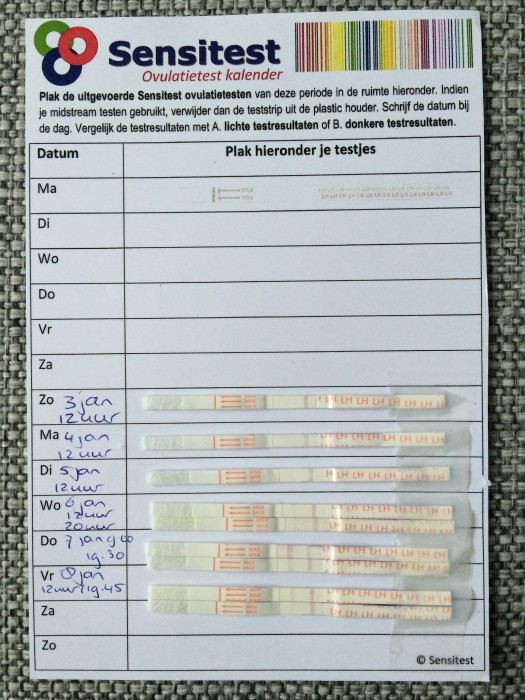 Sensitest
Ovulatietest kalender
Plak de uitgevoerde Sensitest ovulatietesten van deze periode in de ruimte hieronder. Indien
je midstream testen gebruikt, verwijder dan de teststrip uit de plastic houder. Schrijf de datum bij
de dag. Vergelijk de testresultaten met A. lichte testresultaten of B. donkere testresultaten.
Datum Plak hieronder je testjes
Ma MAX LH LH LH LH LH LH LH LH LH LH
Di
Wo
Do
Vr
Za
Zo 3 jan
12 uur
MAX LH LH LH LH LH LH
Ma 4 jan
12 uur
MAX LH LH LH LH LH LH
Di 5 jan
12 uur
MAX LH LH LH LH LH LH
Wo 6 jan
12 uur
20 uur
MAX LH LH LH LH LH LH
Do 7 jan
19.30
MAX LH LH LH LH LH LH
Vr 8 jan
12 uur / 19.45
MAX LH LH LH LH LH LH
Za
Zo
© Sensitest